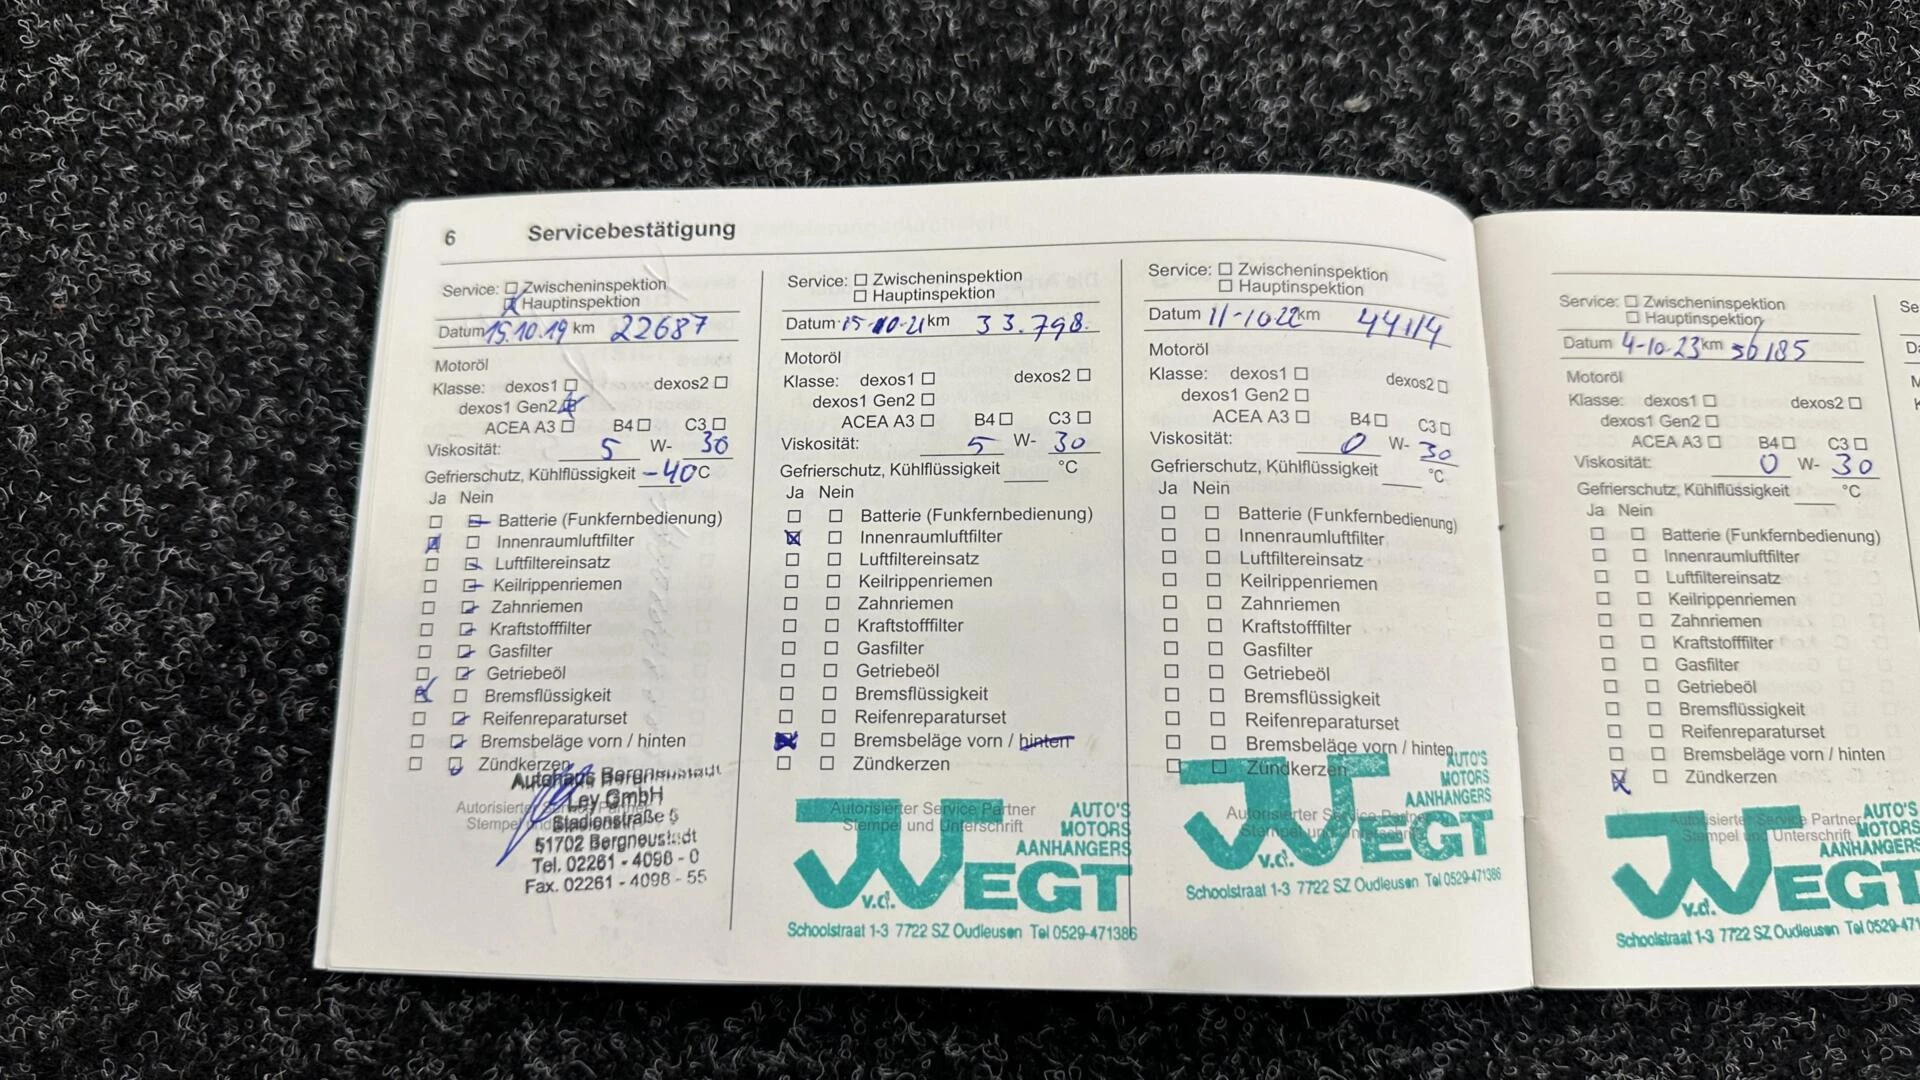 6 Servicebestätigung
Service: Zwischeninspektion
Hauptinspektion
Datum 15.10.19 km 22687
Motoröl
Klasse: dexos1 dexos2
dexos1 Gen2
ACEA A3 B4 C3
Viskosität: 5 W- 30
Gefrierschutz, Kühlflüssigkeit -40°C
Ja Nein
Batterie (Funkfernbedienung)
Innenraumluftfilter
Luftfiltereinsatz
Keilrippenriemen
Zahnriemen
Kraftstofffilter
Gasfilter
Getriebeöl
Bremsflüssigkeit
Reifenreparaturset
Bremsbeläge vorn / hinten
Zündkerzen
Autohaus Bergneustadt
Ley GmbH
Stadionstraße 5
51702 Bergneustadt
Tel. 02261 - 4098 - 0
Fax. 02261 - 4098 - 55
Service: Zwischeninspektion
Hauptinspektion
Datum 15-10-21 km 33.798
Motoröl
Klasse: dexos1 dexos2
dexos1 Gen2
ACEA A3 B4 C3
Viskosität: 5 W- 30
Gefrierschutz, Kühlflüssigkeit °C
Ja Nein
Batterie (Funkfernbedienung)
Innenraumluftfilter
Luftfiltereinsatz
Keilrippenriemen
Zahnriemen
Kraftstofffilter
Gasfilter
Getriebeöl
Bremsflüssigkeit
Reifenreparaturset
Bremsbeläge vorn / hinten
Zündkerzen
Autorisierter Service Partner
Stempel und Unterschrift
AUTO'S
MOTORS
AANHANGERS
v.d. WEGT
Schoolstraat 1-3 7722 SZ Oudleusen Tel 0529-471386
Service: Zwischeninspektion
Hauptinspektion
Datum 11-10-22 km 44114
Motoröl
Klasse: dexos1 dexos2
dexos1 Gen2
ACEA A3 B4 C3
Viskosität: 0 W- 30
Gefrierschutz, Kühlflüssigkeit °C
Ja Nein
Batterie (Funkfernbedienung)
Innenraumluftfilter
Luftfiltereinsatz
Keilrippenriemen
Zahnriemen
Kraftstofffilter
Gasfilter
Getriebeöl
Bremsflüssigkeit
Reifenreparaturset
Bremsbeläge vorn / hinten
Zündkerzen
AUTO'S
MOTORS
AANHANGERS
v.d. WEGT
Schoolstraat 1-3 7722 SZ Oudleusen Tel 0529-471386
Service: Zwischeninspektion
Hauptinspektion
Datum 4-10-23 km 56185
Motoröl
Klasse: dexos1 dexos2
dexos1 Gen2
ACEA A3 B4 C3
Viskosität: 0 W- 30
Gefrierschutz, Kühlflüssigkeit °C
Ja Nein
Batterie (Funkfernbedienung)
Innenraumluftfilter
Luftfiltereinsatz
Keilrippenriemen
Zahnriemen
Kraftstofffilter
Gasfilter
Getriebeöl
Bremsflüssigkeit
Reifenreparaturset
Bremsbeläge vorn / hinten
Zündkerzen
Autorisierter Service Partner
Stempel und Unterschrift
AUTO'S
MOTORS
AANHANGERS
v.d. WEGT
Schoolstraat 1-3 7722 SZ Oudleusen Tel 0529-47